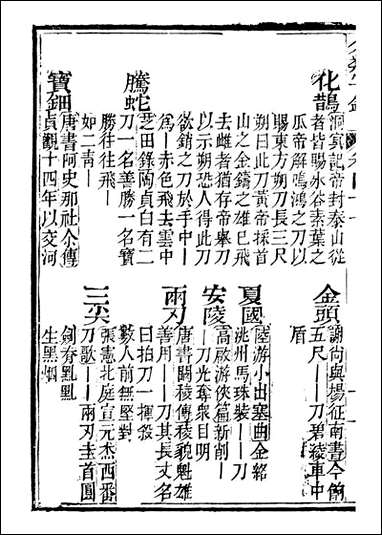 化鵲
洞冥記帝封泰山從
者皆賜冰谷素葉之
瓜帝解鳴鴻之刀以
賜東方朔刀長三尺
朔曰此刀黃帝採首
山之金鑄之雄已飛
去雌者猶存帝舉刀
以示朔恐人得此刀
欲銷之刀於手中丨
為丨赤色飛去雲中
騰蛇
芝田錄陶貞白有二
刀一名善勝一名寶
勝往往飛丨
如二青丨
寶鈿
唐書阿史那社尒傳
貞觀十四年以交河
金頭
謝尚與楊征南書今餉
五尺丨丨刀碧綾車中
盾
夏國
陸游小出塞曲金絡
洮州馬珠裝丨丨刀
安陵
高啟游俠篇新削丨
丨刀光奪衆目明
兩刃
唐書闞稜傳稜貌魁雄
善用丨丨刀其長丈名
曰拍刀一揮殺
數人前無堅對
三尖
張憲北庭宣元杰西番
刀歌丨丨兩刃圭首圓
劍脊㸃㸃
生黑烟